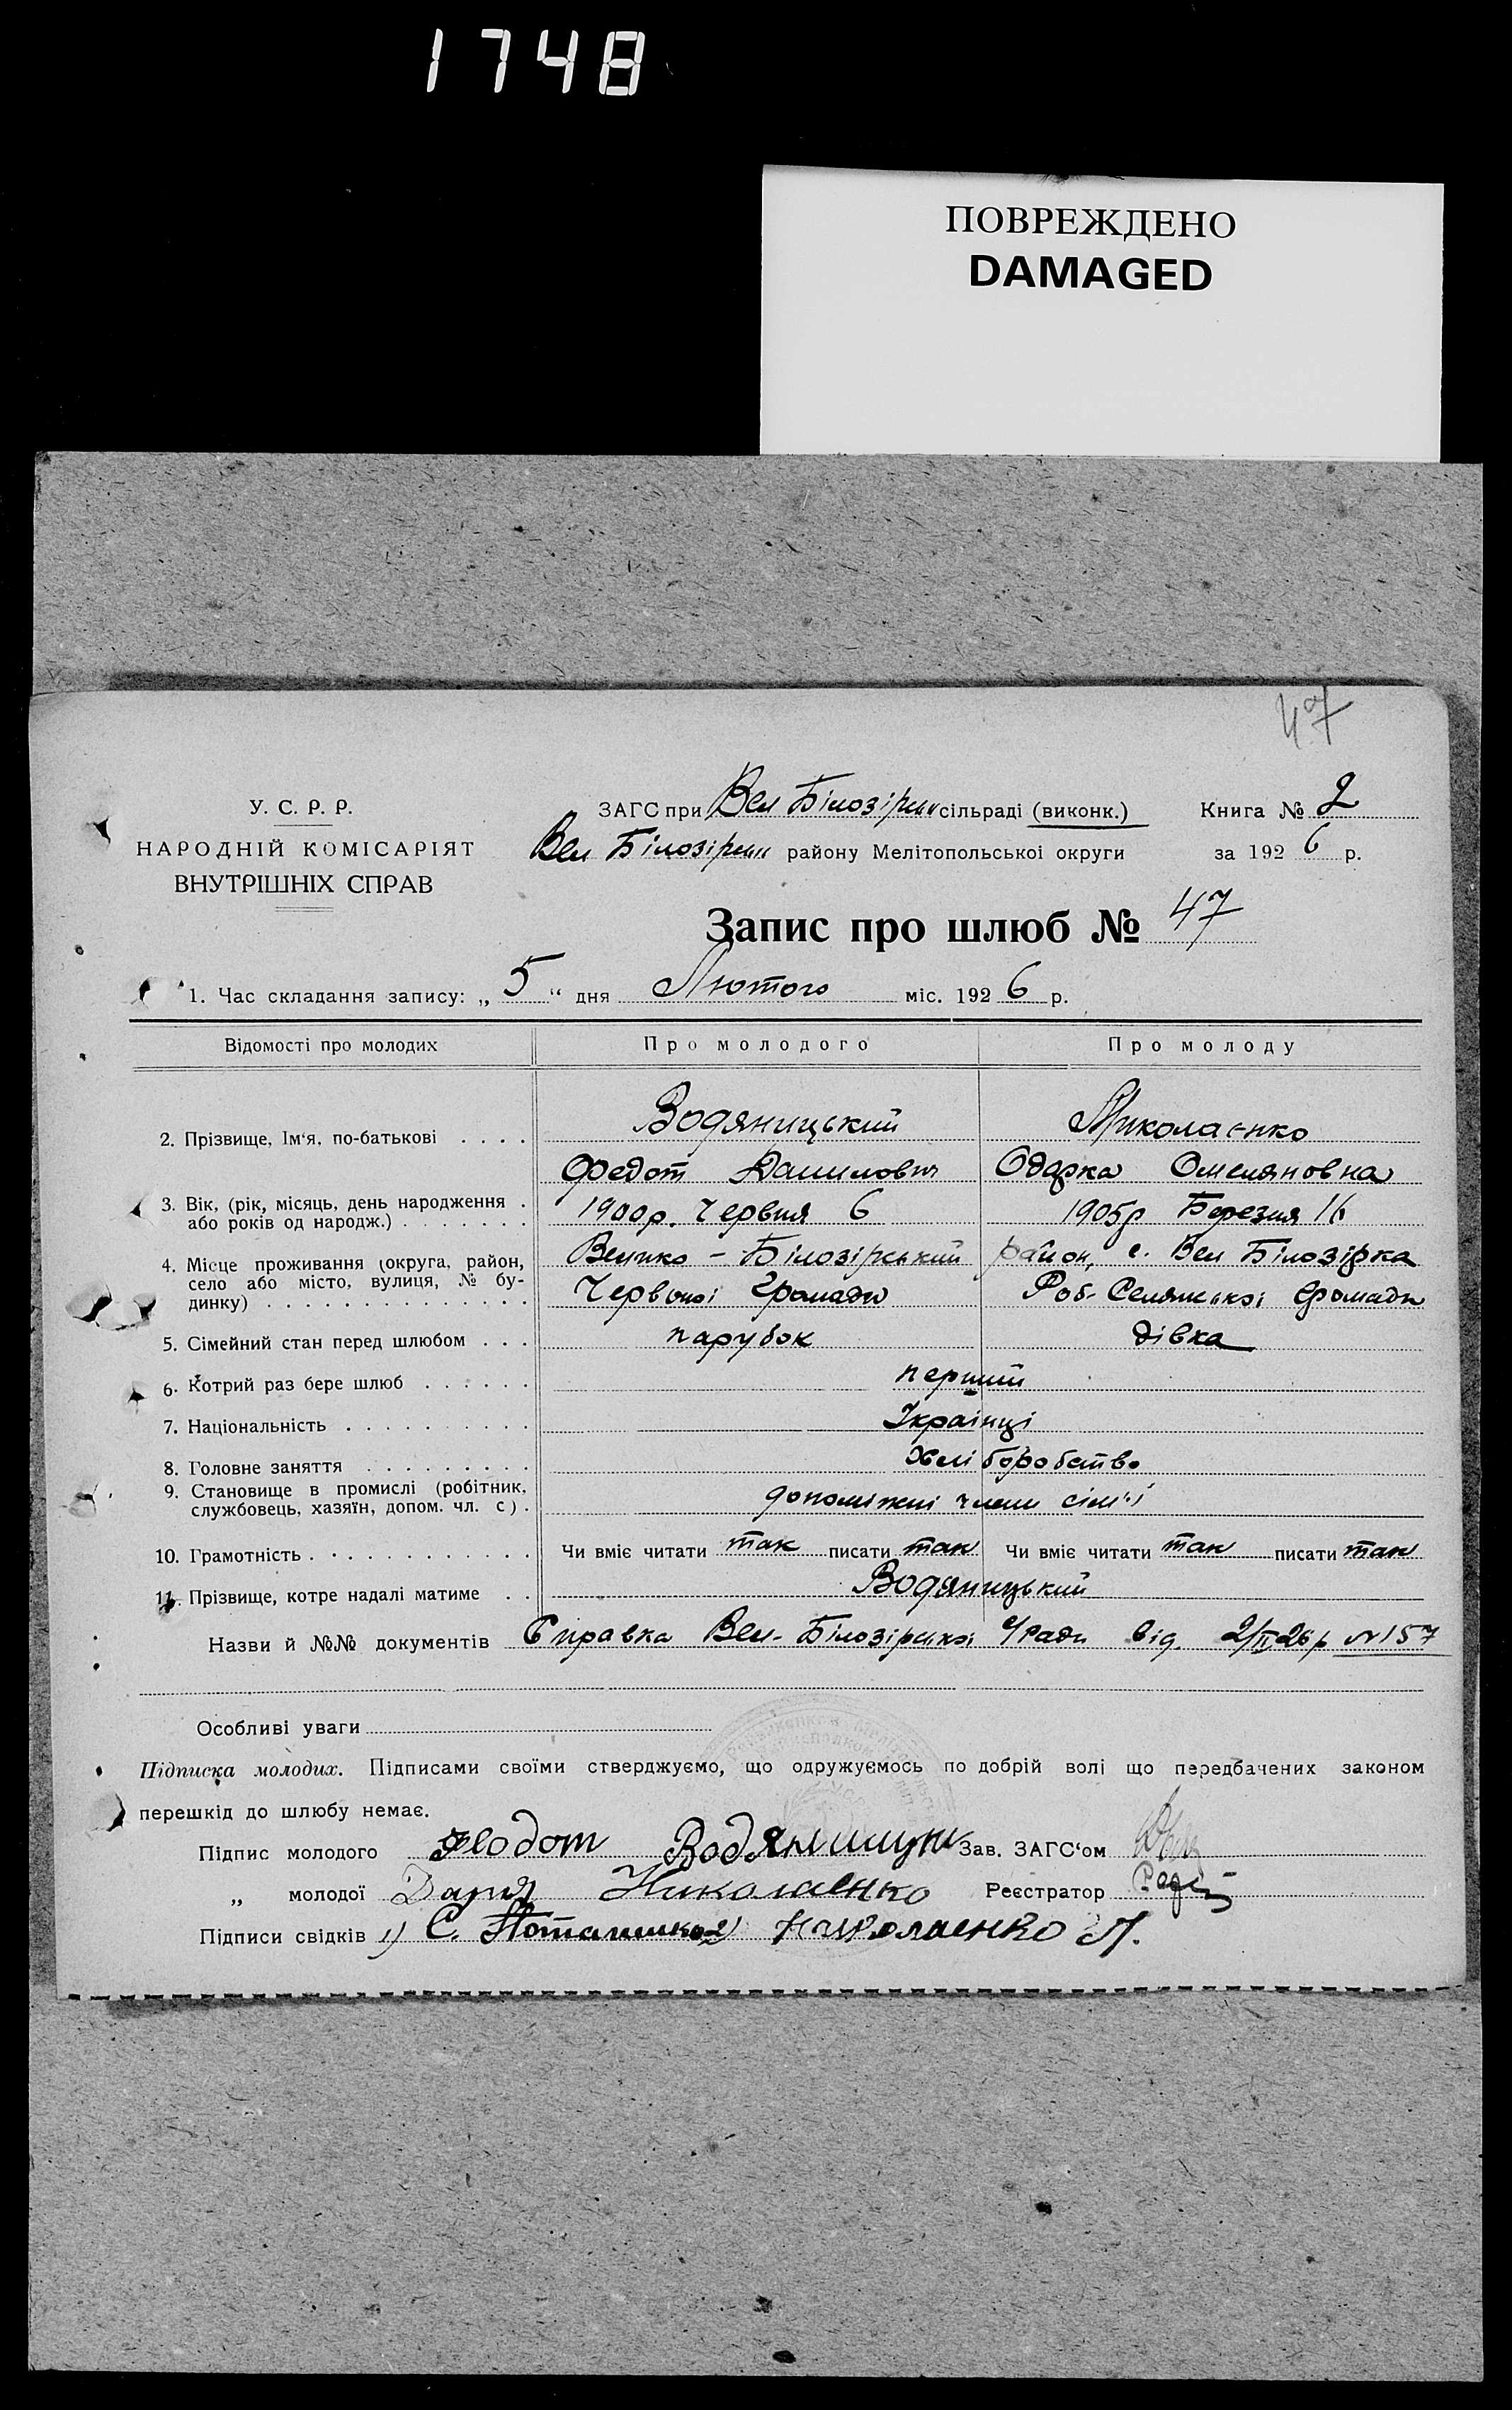 1748
ПОВРЕЖДЕНО
DAMAGED
47
У. С. Р. Р.
НАРОДНІЙ КОМІСАРІЯТ
ВНУТРІШНІХ СПРАВ
ЗАГС при Вел Білозірськ сільраді (виконк.) Книга № 2
Вел Білозірськ району Мелітопольської округи за 192 6 р.
Запис про шлюб № 47
1. Час складання запису: „ 5 “ дня Лютого міс. 192 6 р.
Відомості про молодих Про молодого Про молоду
2. Прізвище, Ім'я, по-батькові . . . . Водяницький Миколаєнко
Федот Данилович Одарка Омеляновна
3. Вік, (рік, місяць, день народження . 1900р. Червня 6 1905р Березня 16
або років од народж.) . . . . . . .
4. Місце проживання (округа, район, Велико - Білозірський район, с. Вел Білозірка
село або місто, вулиця, № бу-
динку) . . . . . . . . . . . . . . Червоної Громади Роб-Селянської Громади
5. Сімейний стан перед шлюбом . . . парубок дівка
6. Котрий раз бере шлюб . . . . . . перший
7. Національність . . . . . . . . . . Українці
8. Головне заняття . . . . . . . . . Хліборобство
9. Становище в промислі (робітник,
службовець, хазяїн, допом. чл. с) . допоміжні члени сім'ї
10. Грамотність . . . . . . . . . . . . Чи вміє читати так писати так Чи вміє читати так писати так
11. Прізвище, котре надалі матиме . . Водяницький
Назви й №№ документів Справка Вел-Білозірської С/Ради від 2/II 26р № 157
Особливі уваги
Підписка молодих. Підписами своїми стверджуємо, що одружуємось по добрій волі що передбачених законом
перешкід до шлюбу немає.
Підпис молодого Федот Зав. ЗАГС'ом
„ молодої Дария Николаенко Реєстратор
Підписи свідків 1) С. 2) Николаенко П.